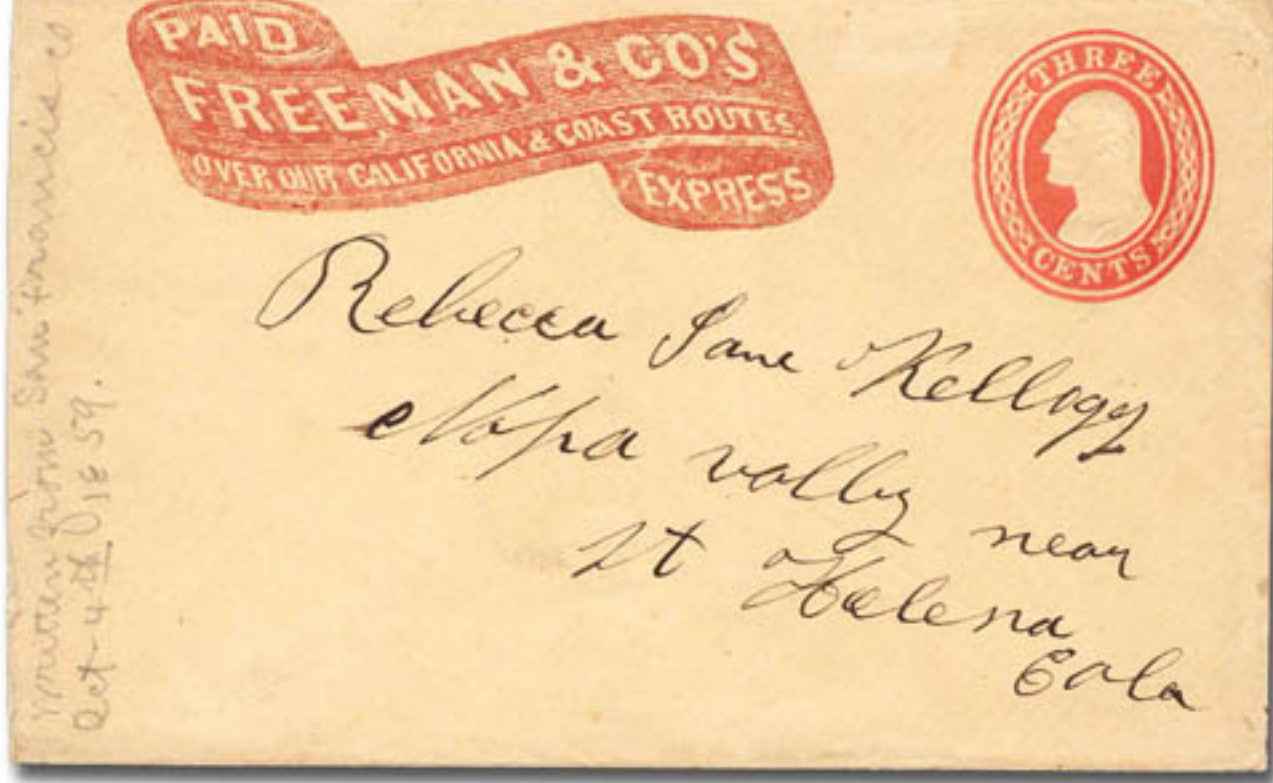 PAID
FREEMAN & CO'S
OVER OUR CALIFORNIA & COAST ROUTES.
EXPRESS
THREE
CENTS
Rebecca Jane Kellogg
Napa valley near
St Helena
Cala
written from San Francisco
Oct - 4th 1859.